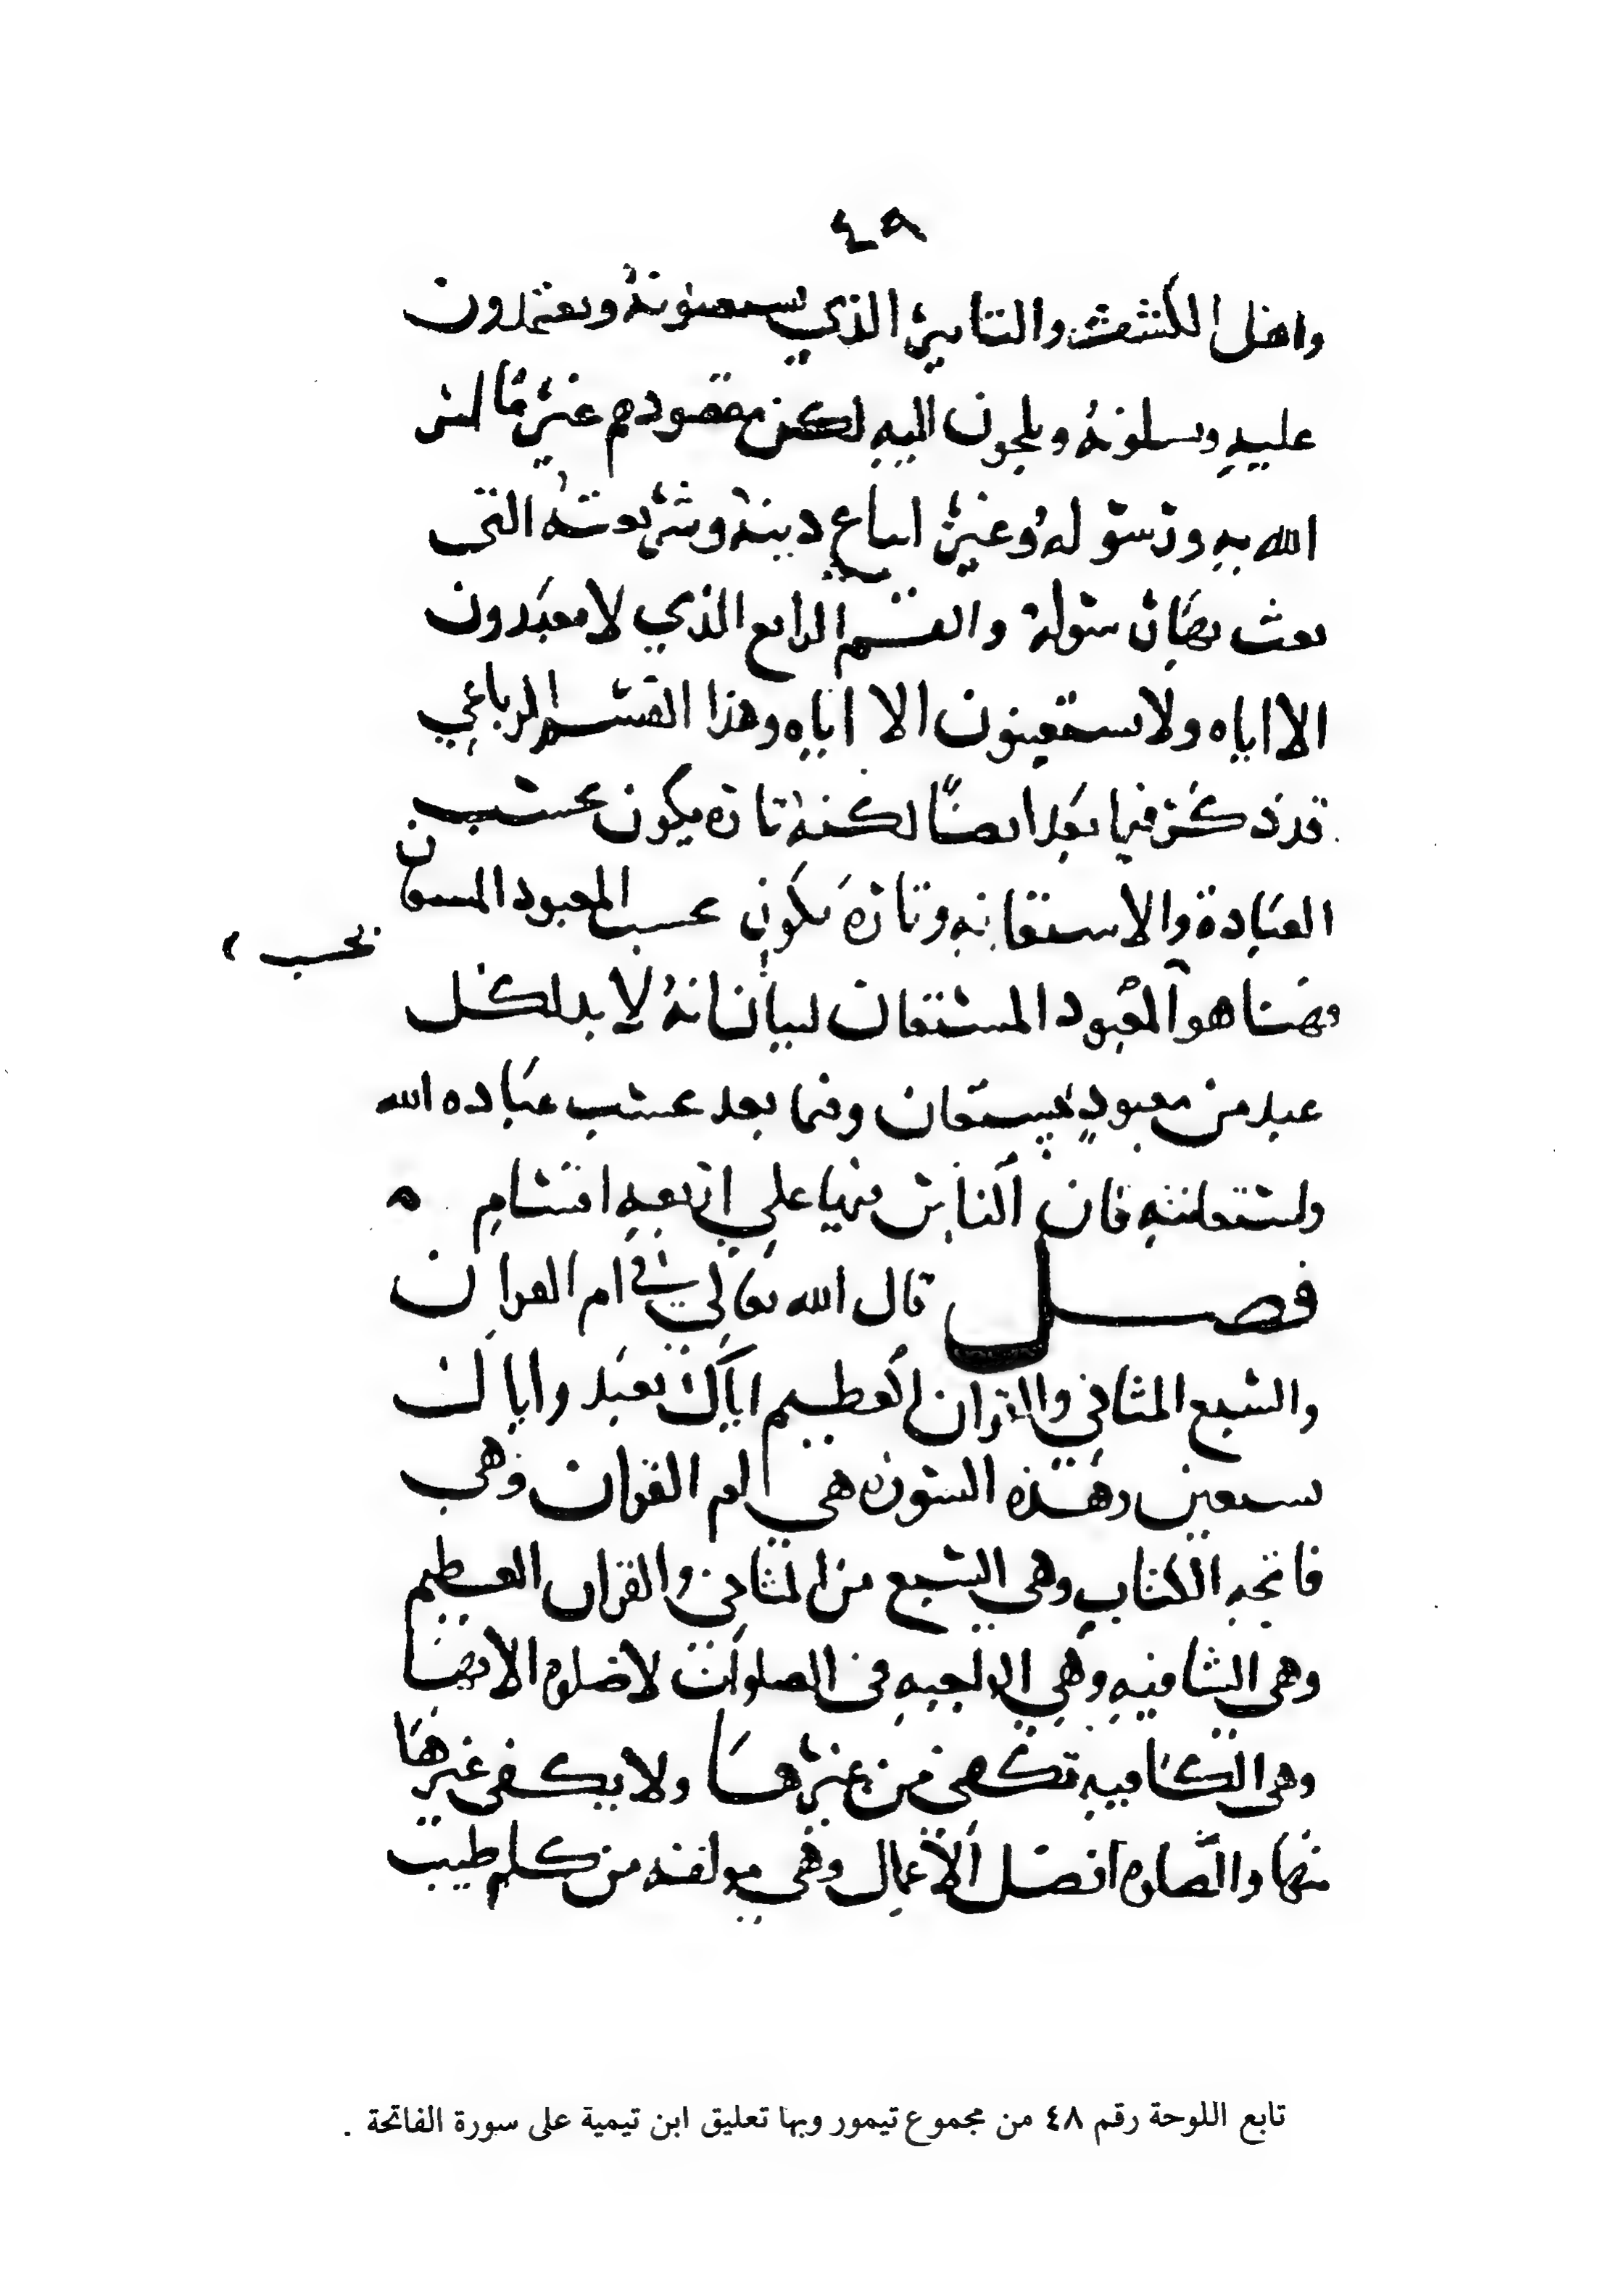 ٤٨
واهل الكشف والتاثير الذي يستعينونه ويعتمدون
عليه ويسلونه ويلجون اليه لكن مقصودهم غير ما امر
الله به ورسوله وغير اتباع دينه وشريعته التي
بعث بها رسوله والقسم الرابع الذي لا يعبدون
الا اياه ولا يستعينون الا اياه وهذا القسم الرباعي
قد ذكر فيما بعد ايضا لكنه تارة يكون بحسب
العبادة والاستعانه وتارة يكون بحسب المعبود المستعان
بحسب
وهنا هو المعبود المستعان لبيان انه لا بد لكل
عبد من معبود مستعان وفيما بعد بحسب عباده الله
واستعانته فان الناس فيها علي اربعه اقسام ه
فصل قال الله تعالي في ام القران
والسبع المثاني والقران العظيم اياك نعبد واياك
نستعين وهذه السورة هي ام القران وهي
فاتحه الكتاب وهي السبع من المثاني والقران العظيم
وهي الشافيه وهي الواجبه في الصلوات لا صلوة الا بها
وهي الكافيه تكفي من غيرها ولا يكفي غيرها
منها والصلوة افضل الاعمال وهي مولفه من كلم طيب
تابع اللوحة رقم ٤٨ من مجموع تيمور وبها تعليق ابن تيمية على سورة الفاتحة .